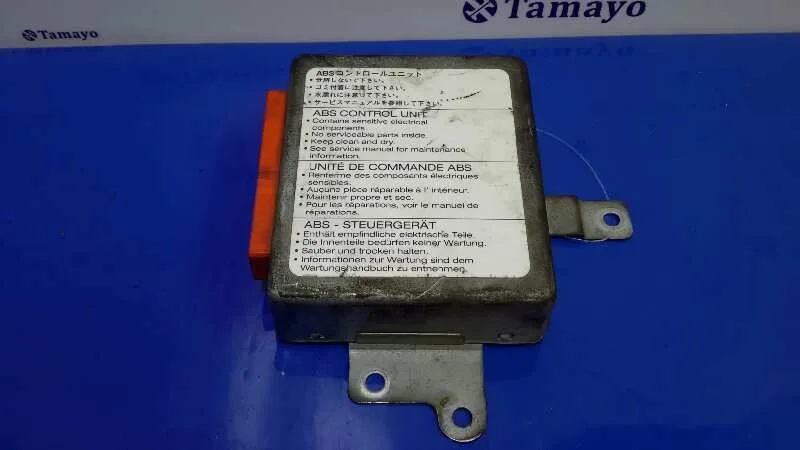 Tamayo
Tamayo
ABSコントロールユニット
• 分解しないで下さい。
• ゴミ付着に注意して下さい。
• 水濡れに注意して下さい。
• サービスマニュアルを参照して下さい。
ABS CONTROL UNIT
• Contains sensitive electrical
components.
• No serviceable parts inside.
• Keep clean and dry.
• See service manual for maintenance
information.
UNITÉ DE COMMANDE ABS
• Renferme des composants électriques
sensibles.
• Aucune pièce réparable à l' intérieur.
• Maintenir propre et sec.
• Pour les réparations, voir le manuel de
réparations.
ABS - STEUERGERÄT
• Enthält empfindliche elektrische Teile.
• Die Innenteile bedürfen keiner Wartung.
• Sauber und trocken halten.
• Informationen zur Wartung sind dem
Wartungshandbuch zu entnehmen.